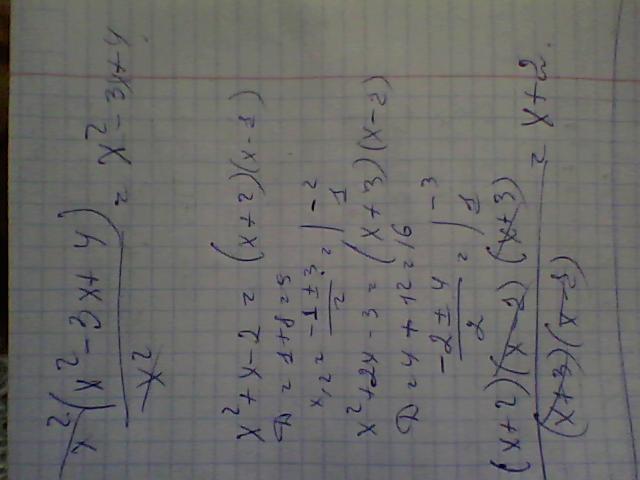 x²(x² - 3x + 4) / x² = x² - 3x + 4
x² + x - 2 = (x + 2)(x - 1)
D = 1 + 8 = 9
x₁,₂ = (-1 ± 3) / 2 = | -2
1
x² + 2x - 3 = (x + 3)(x - 1)
D = 4 + 12 = 16
(-2 ± 4) / 2 = | -3
1
(x + 2)(x - 1)(x + 3) / (x + 3)(x - 1) = x + 2.